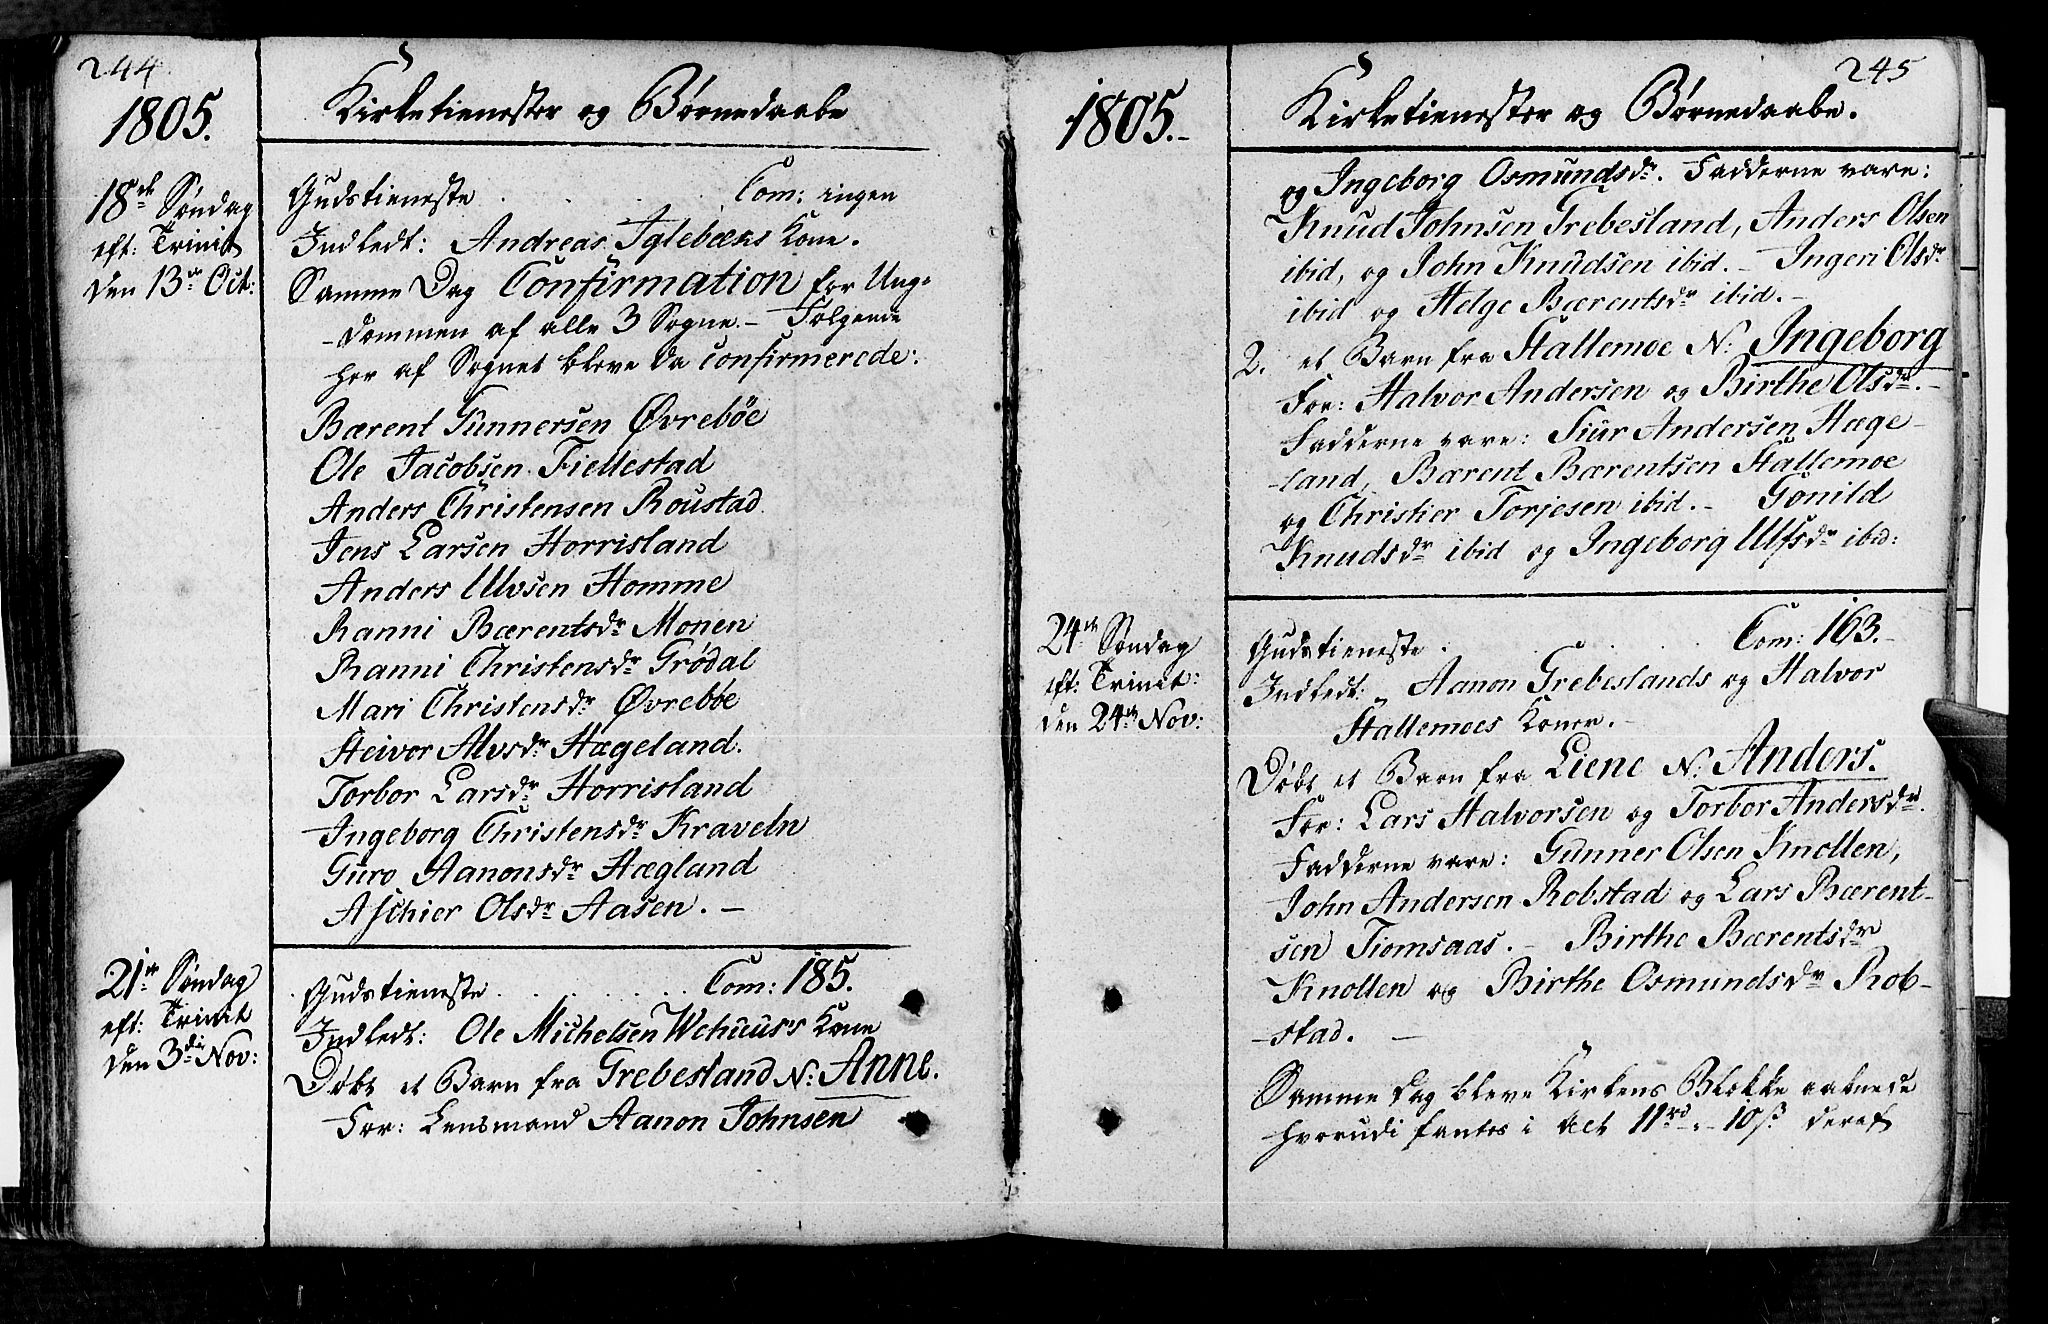 244
1805.
Kirketienester og Børnedaabe
18de Søndag
eft: Trinit
den 13de Oct:
Gudstieneste . . . Com: ingen
Indledt: Andreas Iglebæks Kone.
Samme Dag Confirmation for Ung-
-dommen af alle 3 Sogne. - Følgende
her af Sognet bleve da confirmerede:
Bærent Gunnersen Øvrebøe
Ole Jacobsen Fiellestad
Anders Christensen Roustad
Jens Larsen Horrisland
Anders Ulvsen Homme
Ranni Bærentsdr Monen
Ranni Christensdr Grødal
Mari Christensdr Øvrebøe
Heivor Alvsdr Hægeland.
Torbor Larsdr Horrisland
Ingeborg Christensdr Kraveln
Guro Aanonsdr Hægland
Aschier Olsdr Aasen. -
21de Søndag
eft: Trinit
den 3die Nov:
Gudstieneste . . . . . . Com: 185.
Indledt: Ole Michelsen Wehuus's Kone
Døbt et Barn fra Grebesland N: Anne.
For: Lensmand Aanon Johnsen
245
1805.-
Kirketienester og Børnedaabe.
og Ingeborg Osmundsdr. Fadderne vare:
Knud Johnsen Grebesland, Anders Olsen
ibid, og John Knudsen ibid. - Ingeri Olsdr
ibid og Helge Bærentsdr ibid. -
2. et Barn fra Hallemoe N: Ingeborg
For: Halvor Andersen og Birthe Olsdr. -
Fadderne vare: Siur Andersen Hæge-
-land, Bærent Bærentsen Hallemoe
og Christier Torjesen ibid. - Gonild
Knudsdr ibid og Ingeborg Ulfsdr ibid:
24de Søndag
eft: Trinit:
den 24de Nov:
Gudstieneste . . . . Com: 163.-
Indledt: - Aanon Grebeslands og Halvor
Hallemoes Koner. -
Døbt et Barn fra Liene N: Anders.
For: Lars Halvorsen og Torbor Andersdr.
Fadderne vare: Gunner Olsen Knollen,
John Andersen Robstad og Lars Bærent-
sen Tiomsaas. - Birthe Bærentsdr
Knollen og Birthe Osmundsdr Rob-
-stad. -
Samme Dag bleve Kirkens Blokke aabnede
hvorudi fantes i alt 11rd. - 10ß deraf